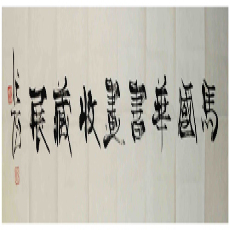 馬國華書畫收藏展